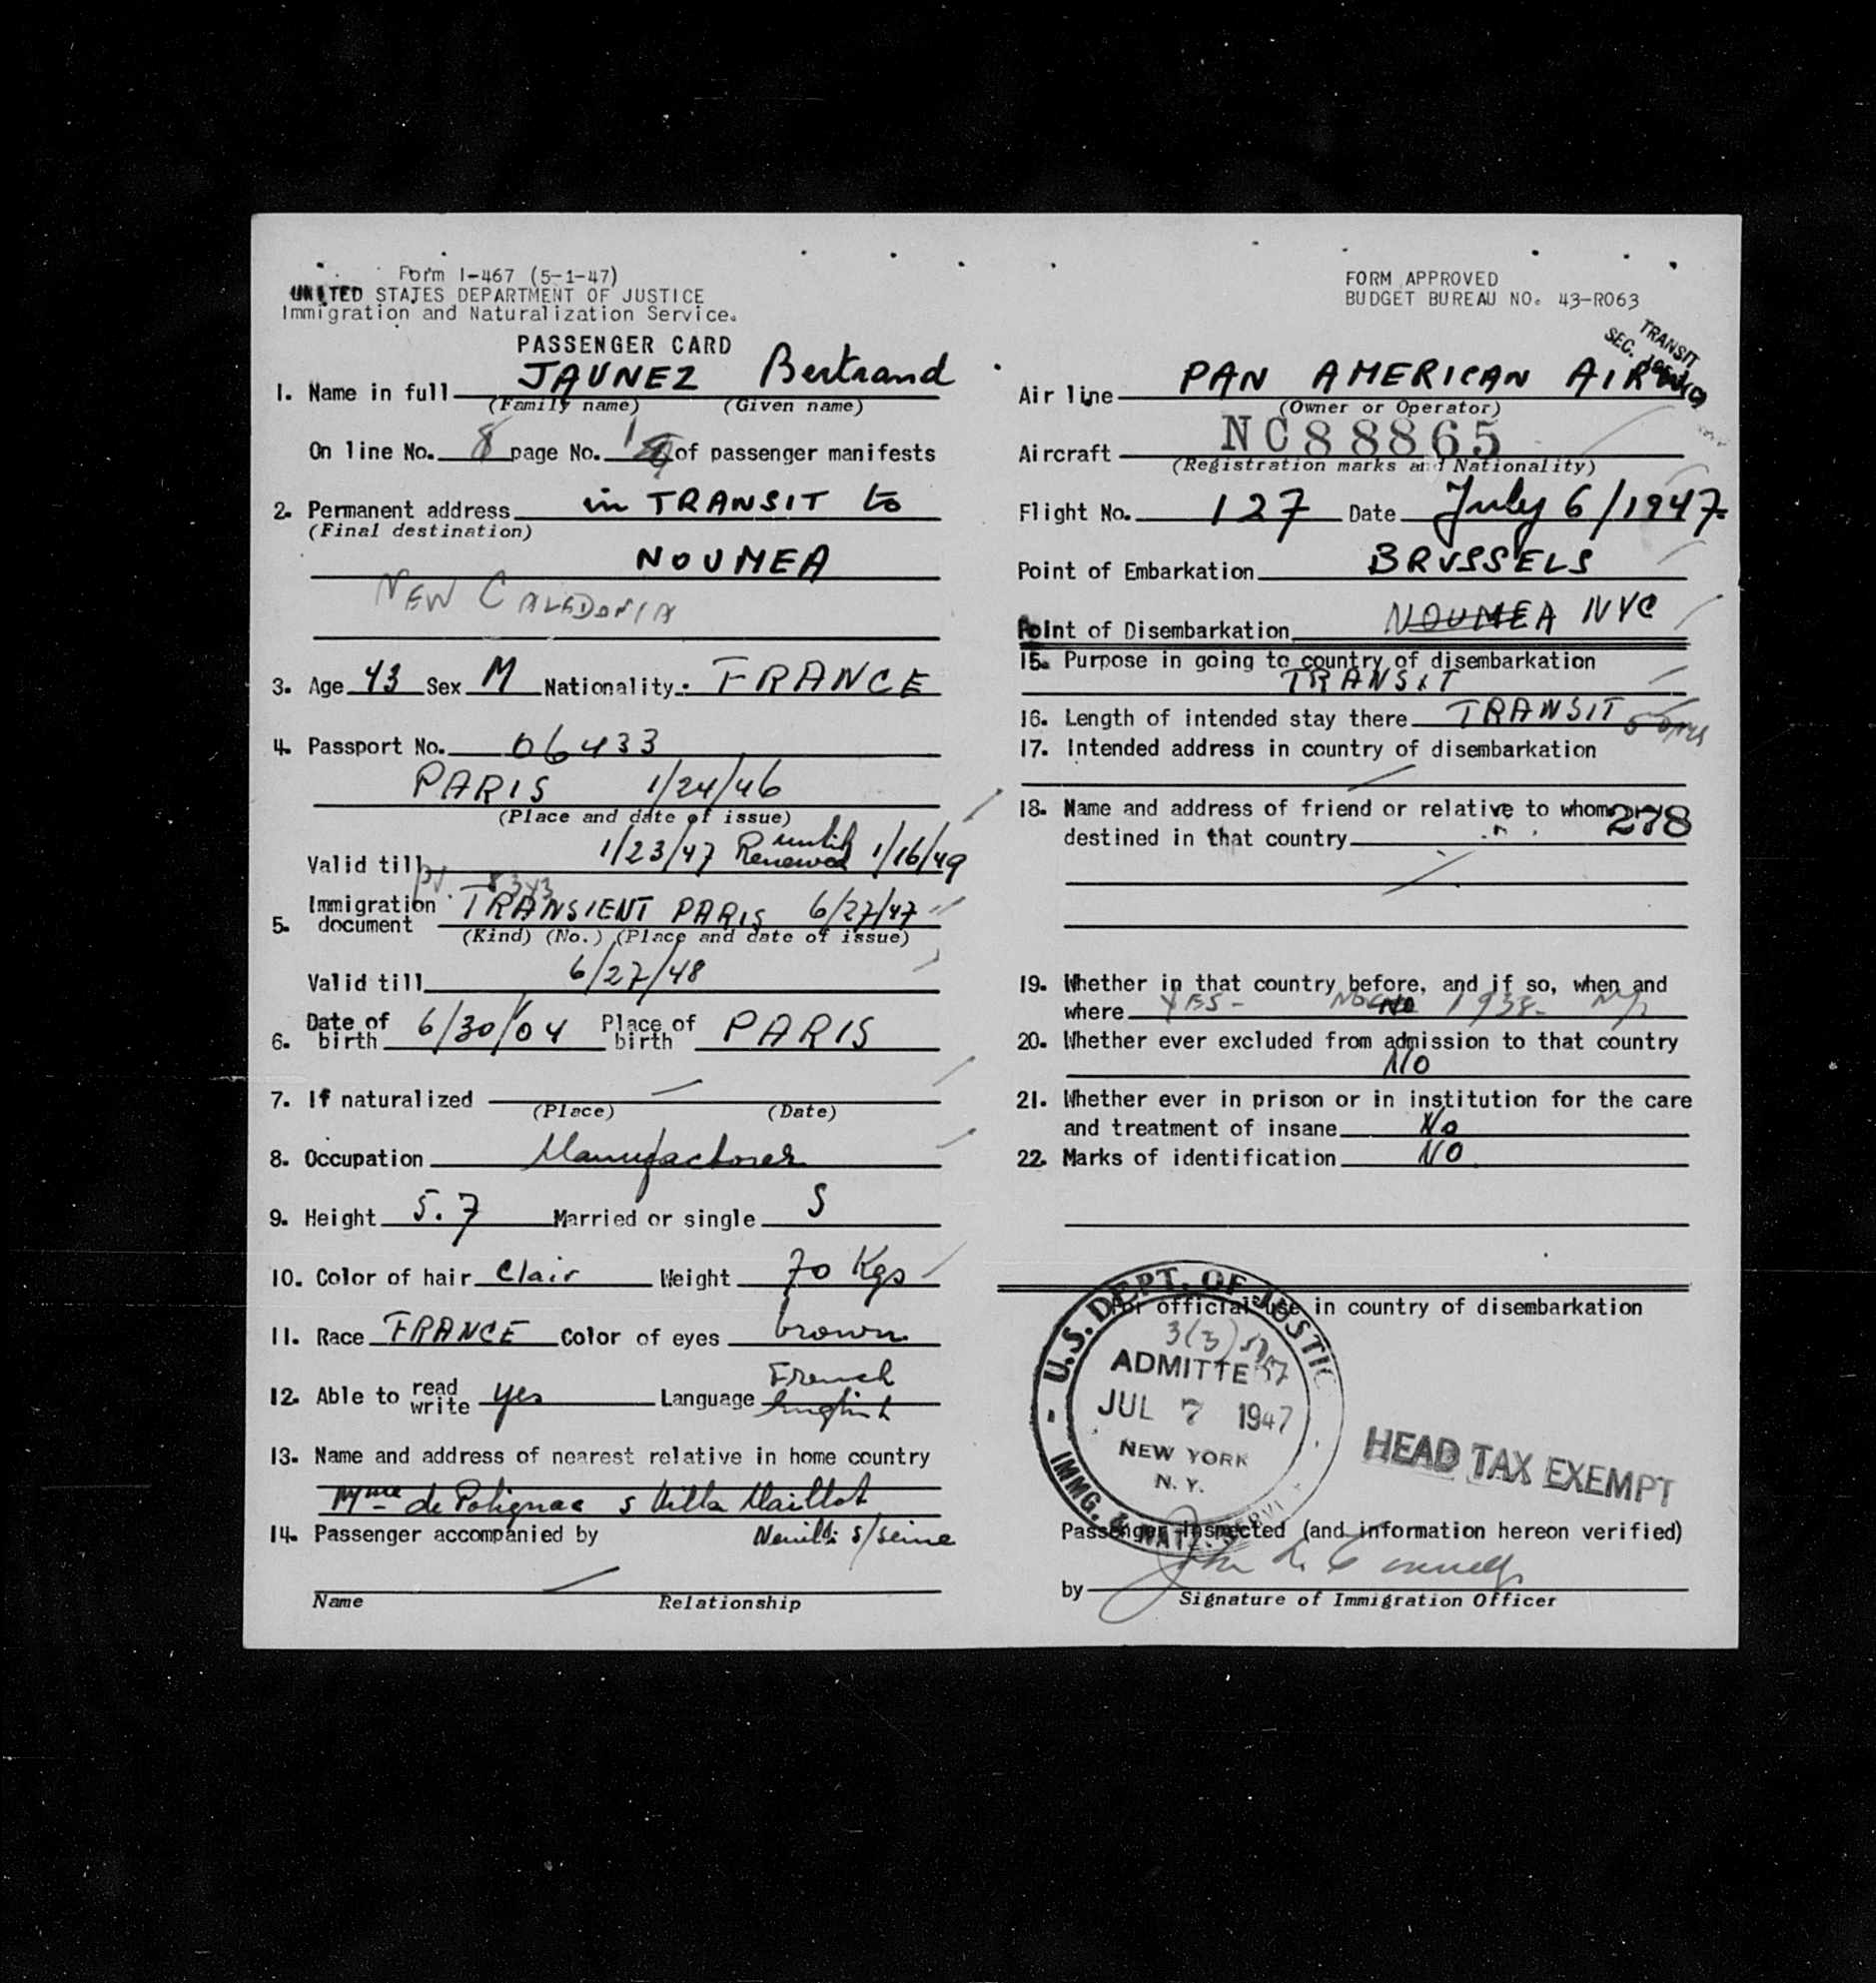 Form I-467 (5-1-47)
UNITED STATES DEPARTMENT OF JUSTICE
Immigration and Naturalization Service.
PASSENGER CARD
1. Name in full JAUNEZ Bertrand
(Family name) (Given name)
On line No. 8 page No. 1 of passenger manifests
2. Permanent address in TRANSIT to
(Final destination)
NOUMEA
NEW CALEDONIA
3. Age 43 Sex M Nationality. FRANCE
4. Passport No. 06433
PARIS 1/24/46
(Place and date of issue)
Valid till 1/23/47 Renewed until 1/16/49
5. Immigration document TRANSIENT PARIS 6/27/47
(Kind) (No.) (Place and date of issue)
Valid till 6/27/48
6. Date of birth 6/30/04 Place of birth PARIS
7. If naturalized
(Place) (Date)
8. Occupation Manufactorer
9. Height 5.7 Married or single S
10. Color of hair Clair Weight 70 Kgs
11. Race FRANCE Color of eyes brown
12. Able to read write yes Language French English
13. Name and address of nearest relative in home country
Mme de Polignac 5 Villa Maillot
Neuilli s/seine
14. Passenger accompanied by
Name Relationship
FORM APPROVED
BUDGET BUREAU NO. 43-R063
TRANSIT
SEC.
Air line PAN AMERICAN AIR
(Owner or Operator)
Aircraft NC88865
(Registration marks and Nationality)
Flight No. 127 Date July 6/1947
Point of Embarkation BRUSSELS
Point of Disembarkation NOUMEA NYC
15. Purpose in going to country of disembarkation
TRANSIT
16. Length of intended stay there TRANSIT
17. Intended address in country of disembarkation
18. Name and address of friend or relative to whom
278
destined in that country
19. Whether in that country before, and if so, when and
where YES - NO 1938-
20. Whether ever excluded from admission to that country
NO
21. Whether ever in prison or in institution for the care
and treatment of insane No
22. Marks of identification NO
For official use in country of disembarkation
U.S. DEPT. OF JUSTICE
ADMITTED
JUL 7 1947
NEW YORK
N. Y.
IMMG. & NATZ. SERVICE
HEAD TAX EXEMPT
Passenger Inspected (and information hereon verified)
by
Signature of Immigration Officer